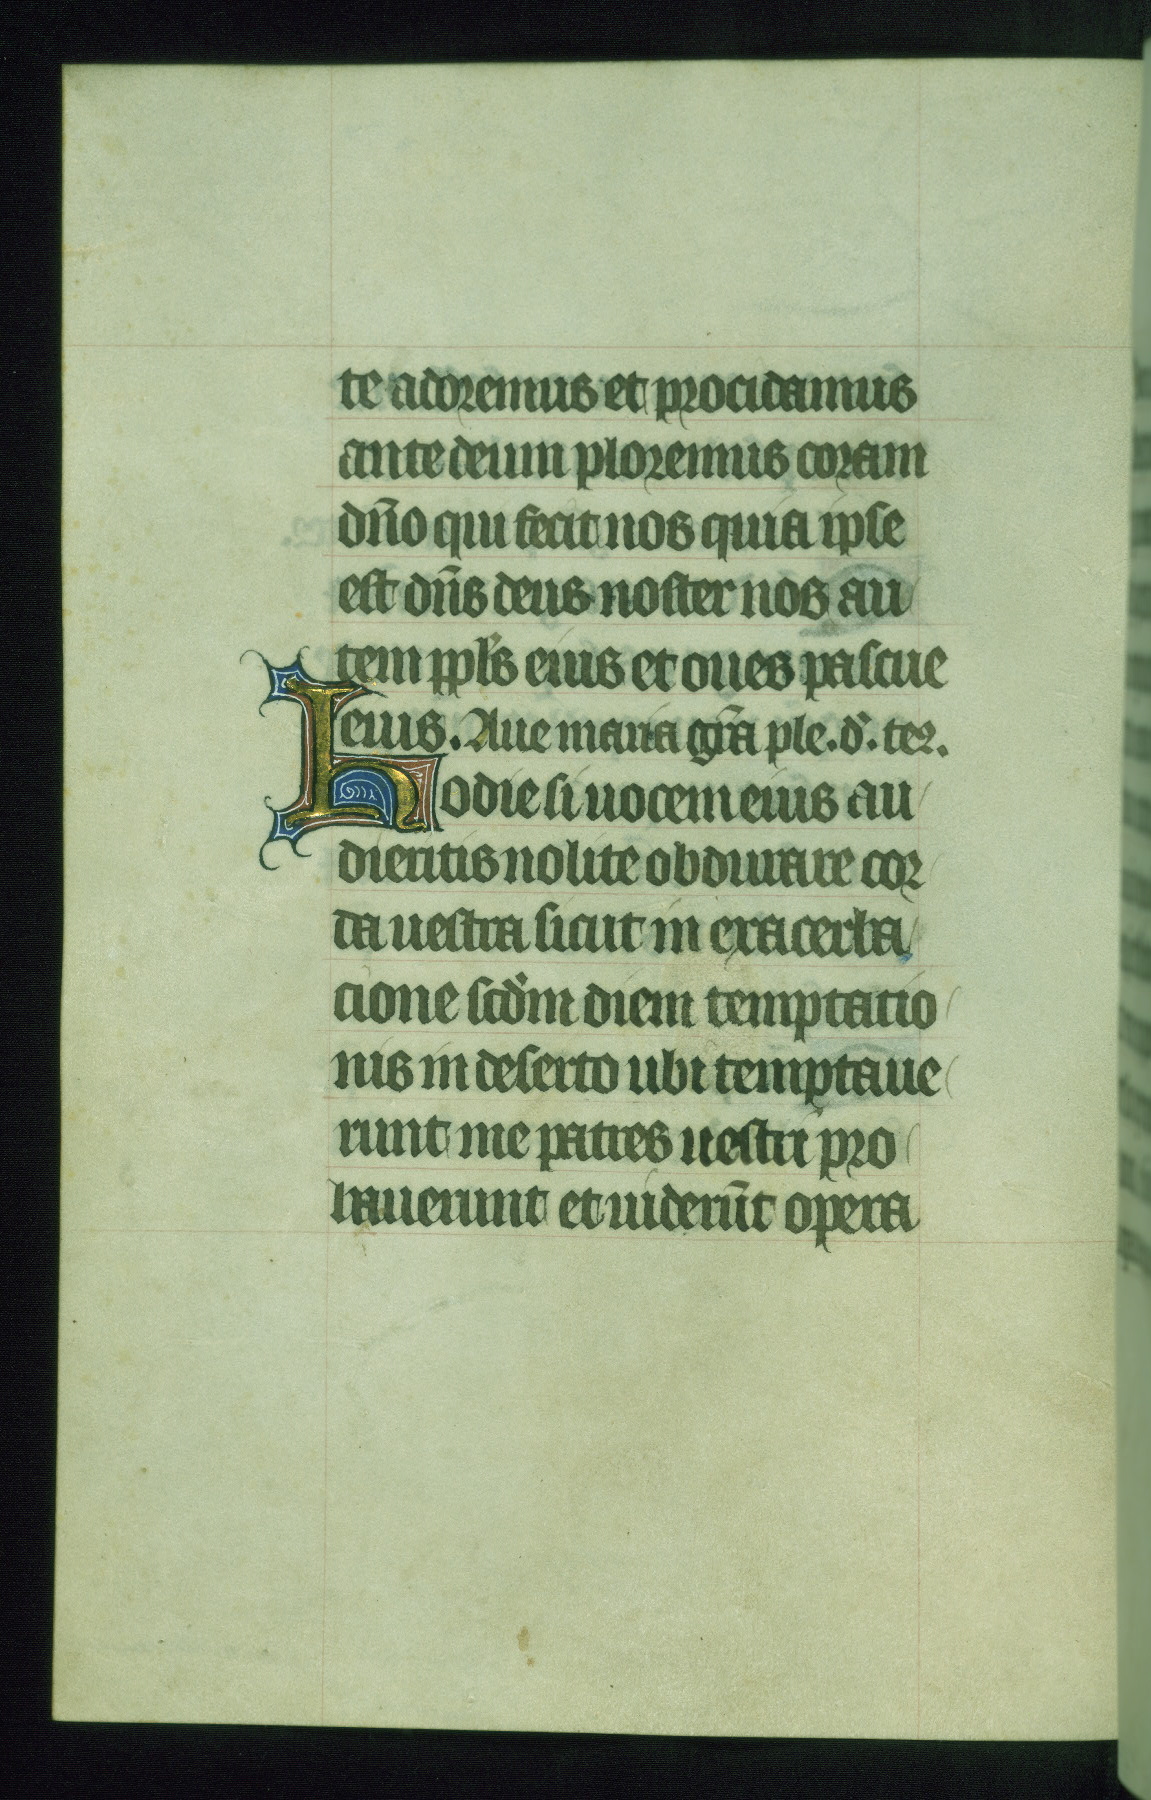 te adoremus et procidamus
ante deum ploremus coram
dn̄o qui fecit nos quia ipse
est dn̄s deus noster nos au
tem ppl̄s eius et oues pascue
eius. Aue maria gr̄a ple. d̄. ter.
hodie si uocem eius au
dieritis nolite obdurare cor
da uestra sicut in exacerba
cione scd̄m diem temptatio
nis in deserto ubi temptaue
runt me patres uestri pro
bauerunt et uiderūt opera